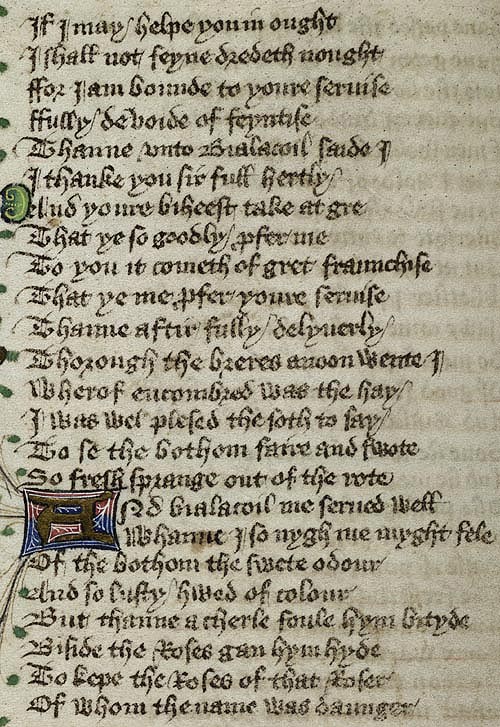 If I may helpe you in ought
I shall not feyne dredeth nought
ffor I am bounde to youre seruise
ffully deuoide of feyntise
Thanne vnto Bialacoil saide I
I thanke you sir full hertly
And youre biheest take at gre
That ye so goodly pfer me
To you it cometh of gret fraunchise
That ye me pfer youre seruise
Thanne aftir fully delyuerly
Thorough the breres anoon wente I
Wherof encombred was the hay
I was wel plesed the soth to say
To se the bothom faire and swote
So fresh sprange out of the rote
And bialacoil me serued well
Whanne I so nygh me myght fele
Of the bothom the swete odour
And so lusty hwed of colour
But thanne a cherle foule hym bityde
Biside the Roses gan hym hyde
To kepe the Roses of that Roser
Of whom the name was daunger